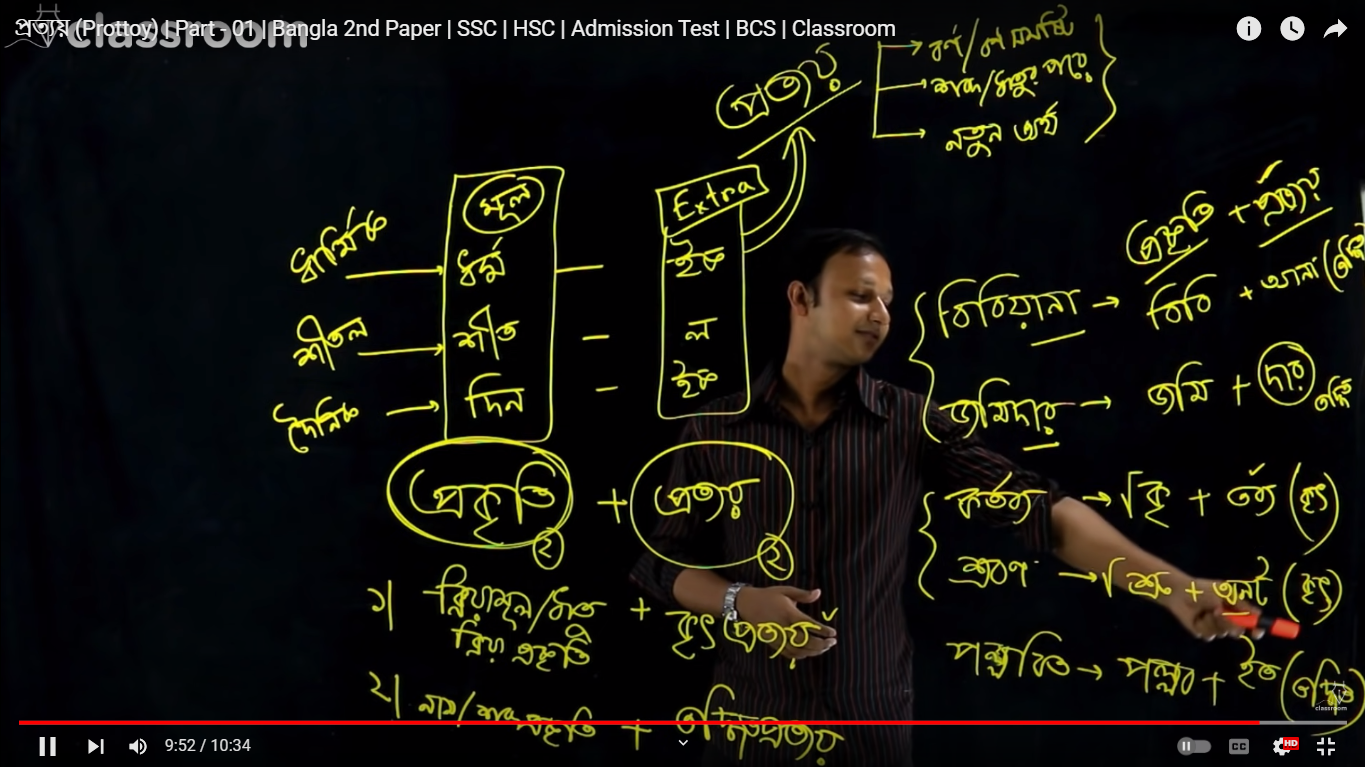 প্রত্যয় (Prottoy) | Part - 01 | Bangla 2nd Paper | SSC | HSC | Admission Test | BCS | Classroom
classroom
প্রত্যয়
বর্ণ/বর্ণ সমষ্টি
শব্দ/ধাতুর পরে
নতুন অর্থ
মূল
Extra
ধার্মিক ধর্ম — ইক
শীতল শীত — ল
দৈনিক দিন — ইক
প্রকৃতি + প্রত্যয়
২ ২
১) ক্রিয়ামূল/ধাতু + কৃৎ প্রত্যয়
ক্রিয়া প্রকৃতি
২) নাম/শব্দ প্রকৃতি + তদ্ধিত প্রত্যয়
প্রকৃতি + প্রত্যয়
বিবিয়ানা → বিবি + আনা
জমিদার → জমি + দার
কর্তব্য → √কৃ + তব্য (কৃৎ)
শ্রবণ → √শ্রু + অনট (কৃৎ)
পল্লবিত → পল্লব + ইত (তদ্ধিত)
classroom
9:52 / 10:34
CC
HD